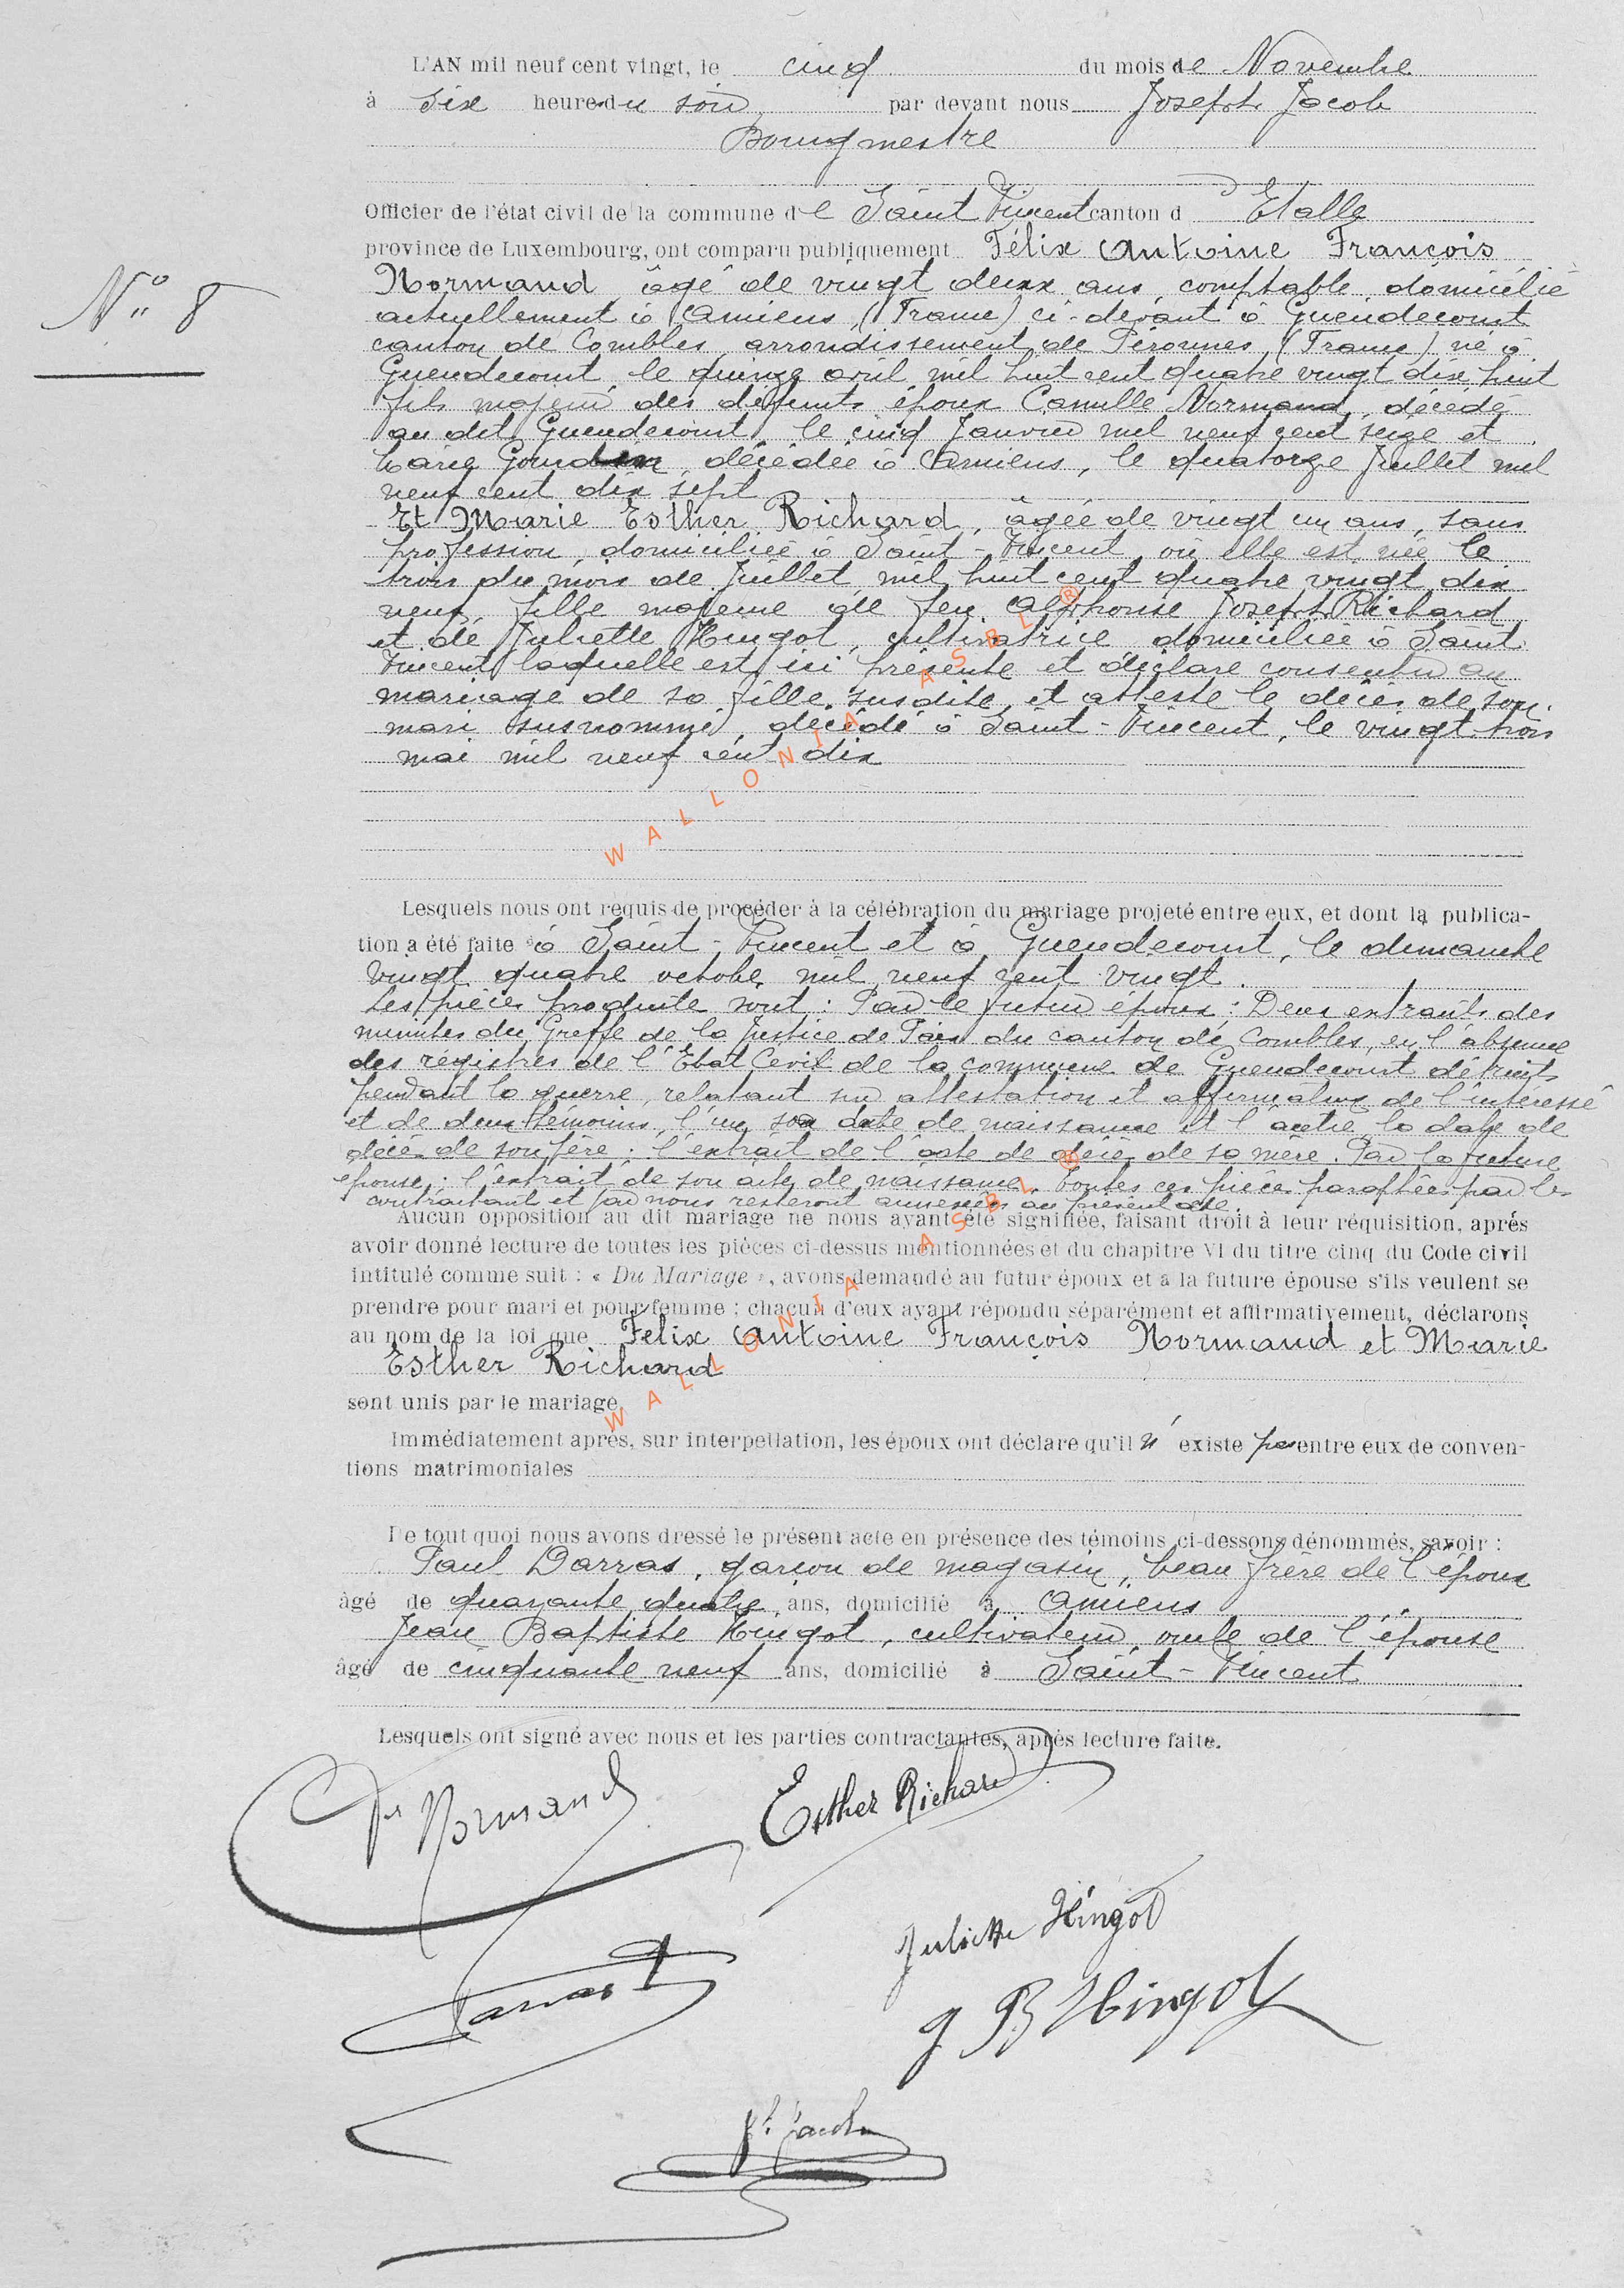 L'AN mil neuf cent vingt, le cinq du mois de Novembre
à six heures du soir par devant nous Joseph Jacob
Bourgmestre
Officier de l'état civil de la commune de Saint Vincent canton d Etalle
province de Luxembourg, ont comparu publiquement Félix Antoine François
N° 8
Normand, âgé de vingt deux ans, comptable, domicilié
actuellement à Amiens, (France) ci-devant à Gueudecourt
canton de Combles, arrondissement de Péronnes, (France) né à
Gueudecourt, le quinze avril mil huit cent quatre vingt dix huit
fils majeur des défunts époux Camille Normand, décédé
au dit Gueudecourt, le cinq Janvier mil neuf cent seize et
Marie, décédée à Amiens, le quatorze Juillet mil
neuf cent dix sept
Et Marie Esther Richard, âgée de vingt un ans, sans
profession, domiciliée à Saint-Vincent, où elle est née le
trois du mois de Juillet mil huit cent quatre vingt dix
neuf, fille majeure de feu Alphonse Joseph Richard
et de Juliette Hingot, cultivatrice, domiciliée à Saint
Vincent laquelle est ici présente et déclare consentir au
mariage de sa fille susdite, et atteste le décès de son
mari susnommé, décédé à Saint-Vincent, le vingt trois
mai mil neuf cent dix
WALLONIA ASBL ®
Lesquels nous ont requis de procéder à la célébration du mariage projeté entre eux, et dont la publica-
tion a été faite à Saint-Vincent et à Gueudecourt, le dimanche
vingt quatre octobre mil neuf cent vingt.
Les pièces produite sont : Par le futur époux : Deux extraits des
minutes du Greffe de la Justice de Paix du canton de Combles, en l'absence
des registres de l'Etat Civil de la commune de Gueudecourt détruits
pendant la guerre, relatant sur attestation et affirmation de l'intéressé
et de deux témoins, l'un sa date de naissance et l'autre la date de
décès de son père ; l'extrait de l'acte de décès de sa mère. Par la future
épouse : l'extrait de son acte de naissance. Toutes ces pièces paraphées par les
contractant et par nous resteront annexées au présent acte.
Aucun opposition au dit mariage ne nous ayant été signifiée, faisant droit à leur réquisition, aprés
avoir donné lecture de toutes les pièces ci-dessus mentionnées et du chapitre VI du titre cinq du Code civil
intitulé comme suit : « Du Mariage », avons demandé au futur époux et à la future épouse s'ils veulent se
prendre pour mari et pour femme : chacun d'eux ayant répondu séparément et affirmativement, déclarons
au nom de la loi que Félix Antoine François Normand et Marie
Esther Richard
sont unis par le mariage
WALLONIA ASBL ®
Immédiatement aprés, sur interpellation, les époux ont déclare qu'il n'existe pas entre eux de conven-
tions matrimoniales
De tout quoi nous avons dressé le présent acte en présence des témoins ci-dessous dénommés, savoir :
Paul Darras, garçon de magasin, beau frère de l'époux
âgé de quarante quatre ans, domicilié à Amiens
Jean Baptiste Hingot, cultivateur, oncle de l'épouse
âgé de cinquante neuf ans, domicilié à Saint-Vincent
Lesquels ont signé avec nous et les parties contractantes, après lecture faite.
Normand Esther Richard
Juliette Hingot
Darras
J B Hingot
Jh Jacob